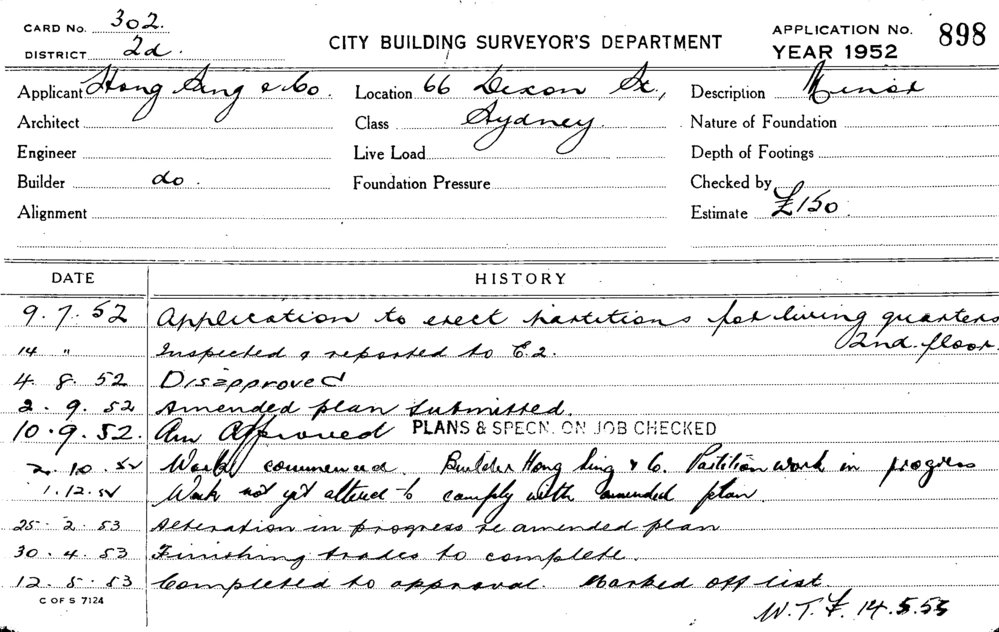 CARD No. 302.
DISTRICT 2d.
CITY BUILDING SURVEYOR'S DEPARTMENT
APPLICATION No. 898
YEAR 1952
Applicant Hong Sing & Co. Location 66 Dixon St., Description Minor
Architect Class Sydney. Nature of Foundation
Engineer Live Load Depth of Footings
Builder do. Foundation Pressure Checked by
Alignment Estimate £150.
DATE HISTORY
9.7.52 Application to erect partitions for living quarters
2nd. floor.
14 " Inspected & reported to E.2.
4. 8. 52 Disapproved
2. 9. 52 Amended plan submitted.
10.9.52. Am Approved PLANS & SPECN. ON JOB CHECKED
2.10.52 Work commenced. Builder Hong Sing & Co. Partition work in progress
1.12.52 Work not yet altered to comply with amended plan.
25.2.53 Alteration in progress re amended plan
30.4.53 Finishing trades to complete.
12.5.53 Completed to approval. Marked off list.
C OF S 7124
W.T.F. 14.5.53